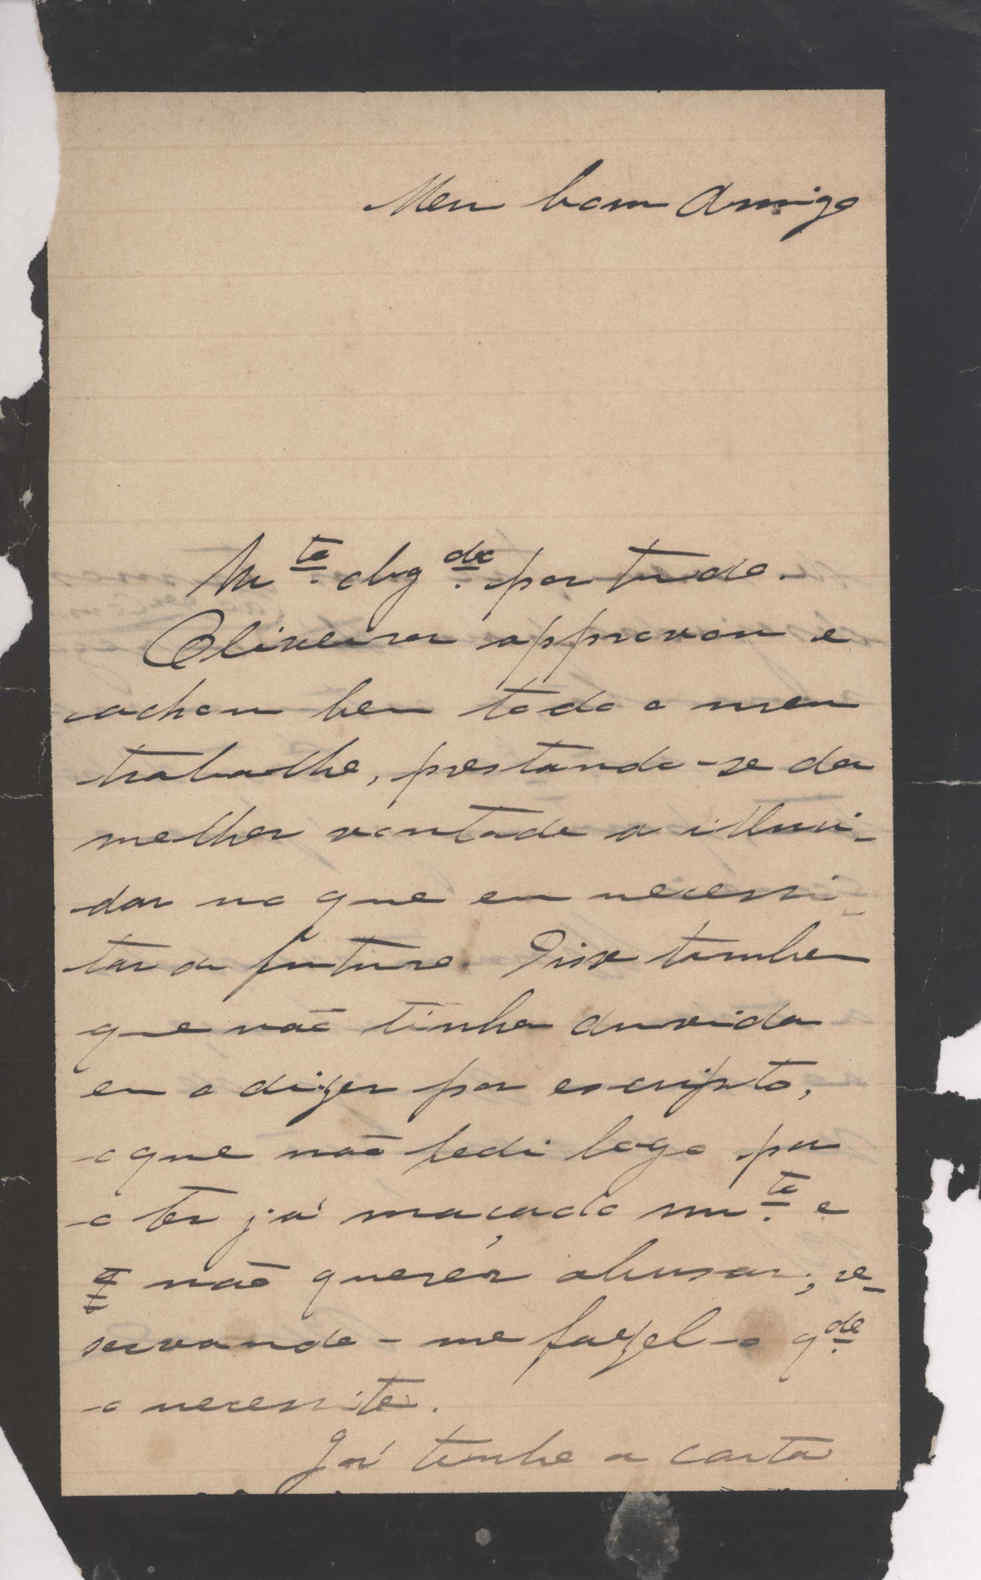 Meu bom Amigo
Mto. obgdo. por tudo.
Oliveira approvou e
achou bem todo o meu
trabalho, prestando-se da
melhor vontade a illuci-
dar no que eu necessi-
tar de futuro. Disse tambem
que não tinha duvida
em o dizer por escripto,
o que não pedi logo por
o ter já maçado mto. e
não querer abusar; re-
servando-me fazel-o qdo.
o necessite.
Já tenho a carta